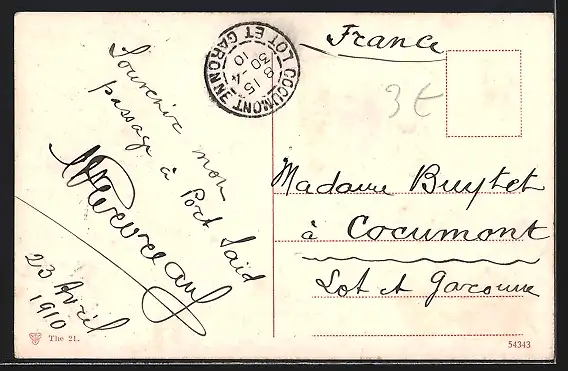 Souvenir mon
passage à Port Said
23 Avril
1910
The 21.
COCUMONT
LOT ET GARONNE
8 15
30 -4
10
France
3 €
Madame Buytet
à Cocumont
Lot et Garonne
54343